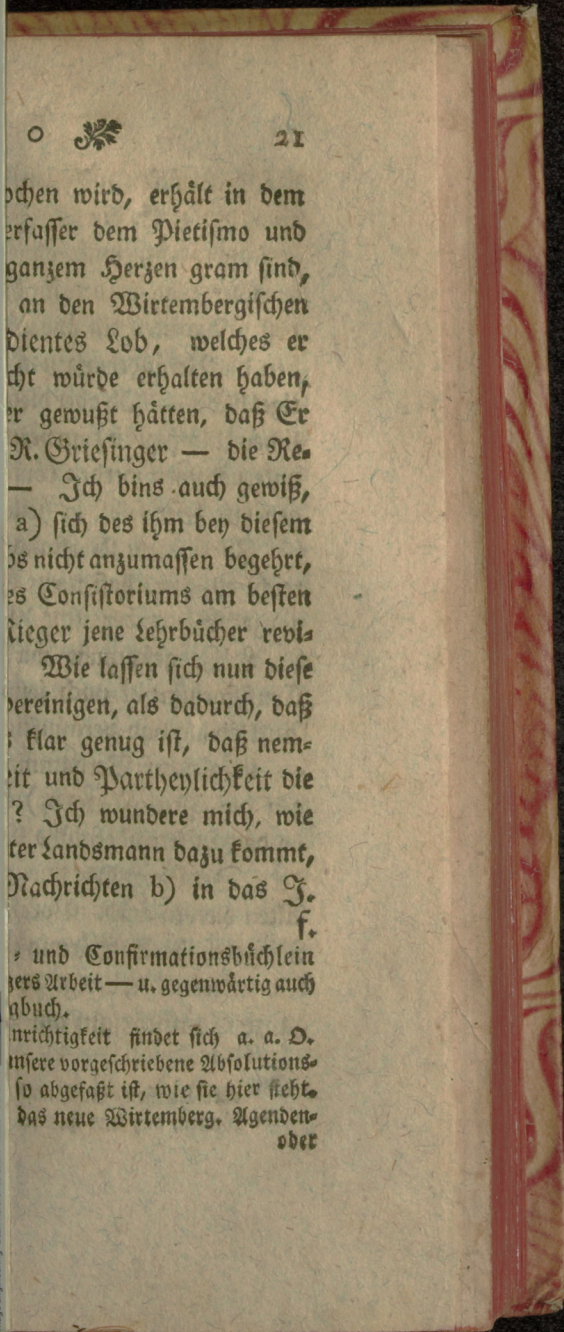 o 21
ochen wird, erhält in dem
erfasser dem Pietismo und
ganzem Herzen gram sind,
an den Wirtembergischen
dientes Lob, welches er
cht würde erhalten haben,
er gewußt hätten, daß Er
R. Griesinger — die Re-
— Ich bins auch gewiß,
a) sich des ihm bey diesem
bs nicht anzumassen begehrt,
es Consistoriums am besten
Rieger jene Lehrbücher revi-
Wie lassen sich nun diese
vereinigen, als dadurch, daß
s klar genug ist, daß nem-
eit und Partheylichkeit die
? Ich wundere mich, wie
ter Landsmann dazu kommt,
Nachrichten b) in das J.
f.
- und Confirmationsbüchlein
zers Arbeit — u. gegenwärtig auch
gbuch.
nrichtigkeit findet sich a. a. O.
unsere vorgeschriebene Absolutions-
so abgefaßt ist, wie sie hier steht.
das neue Wirtemberg. Agenden-
oder